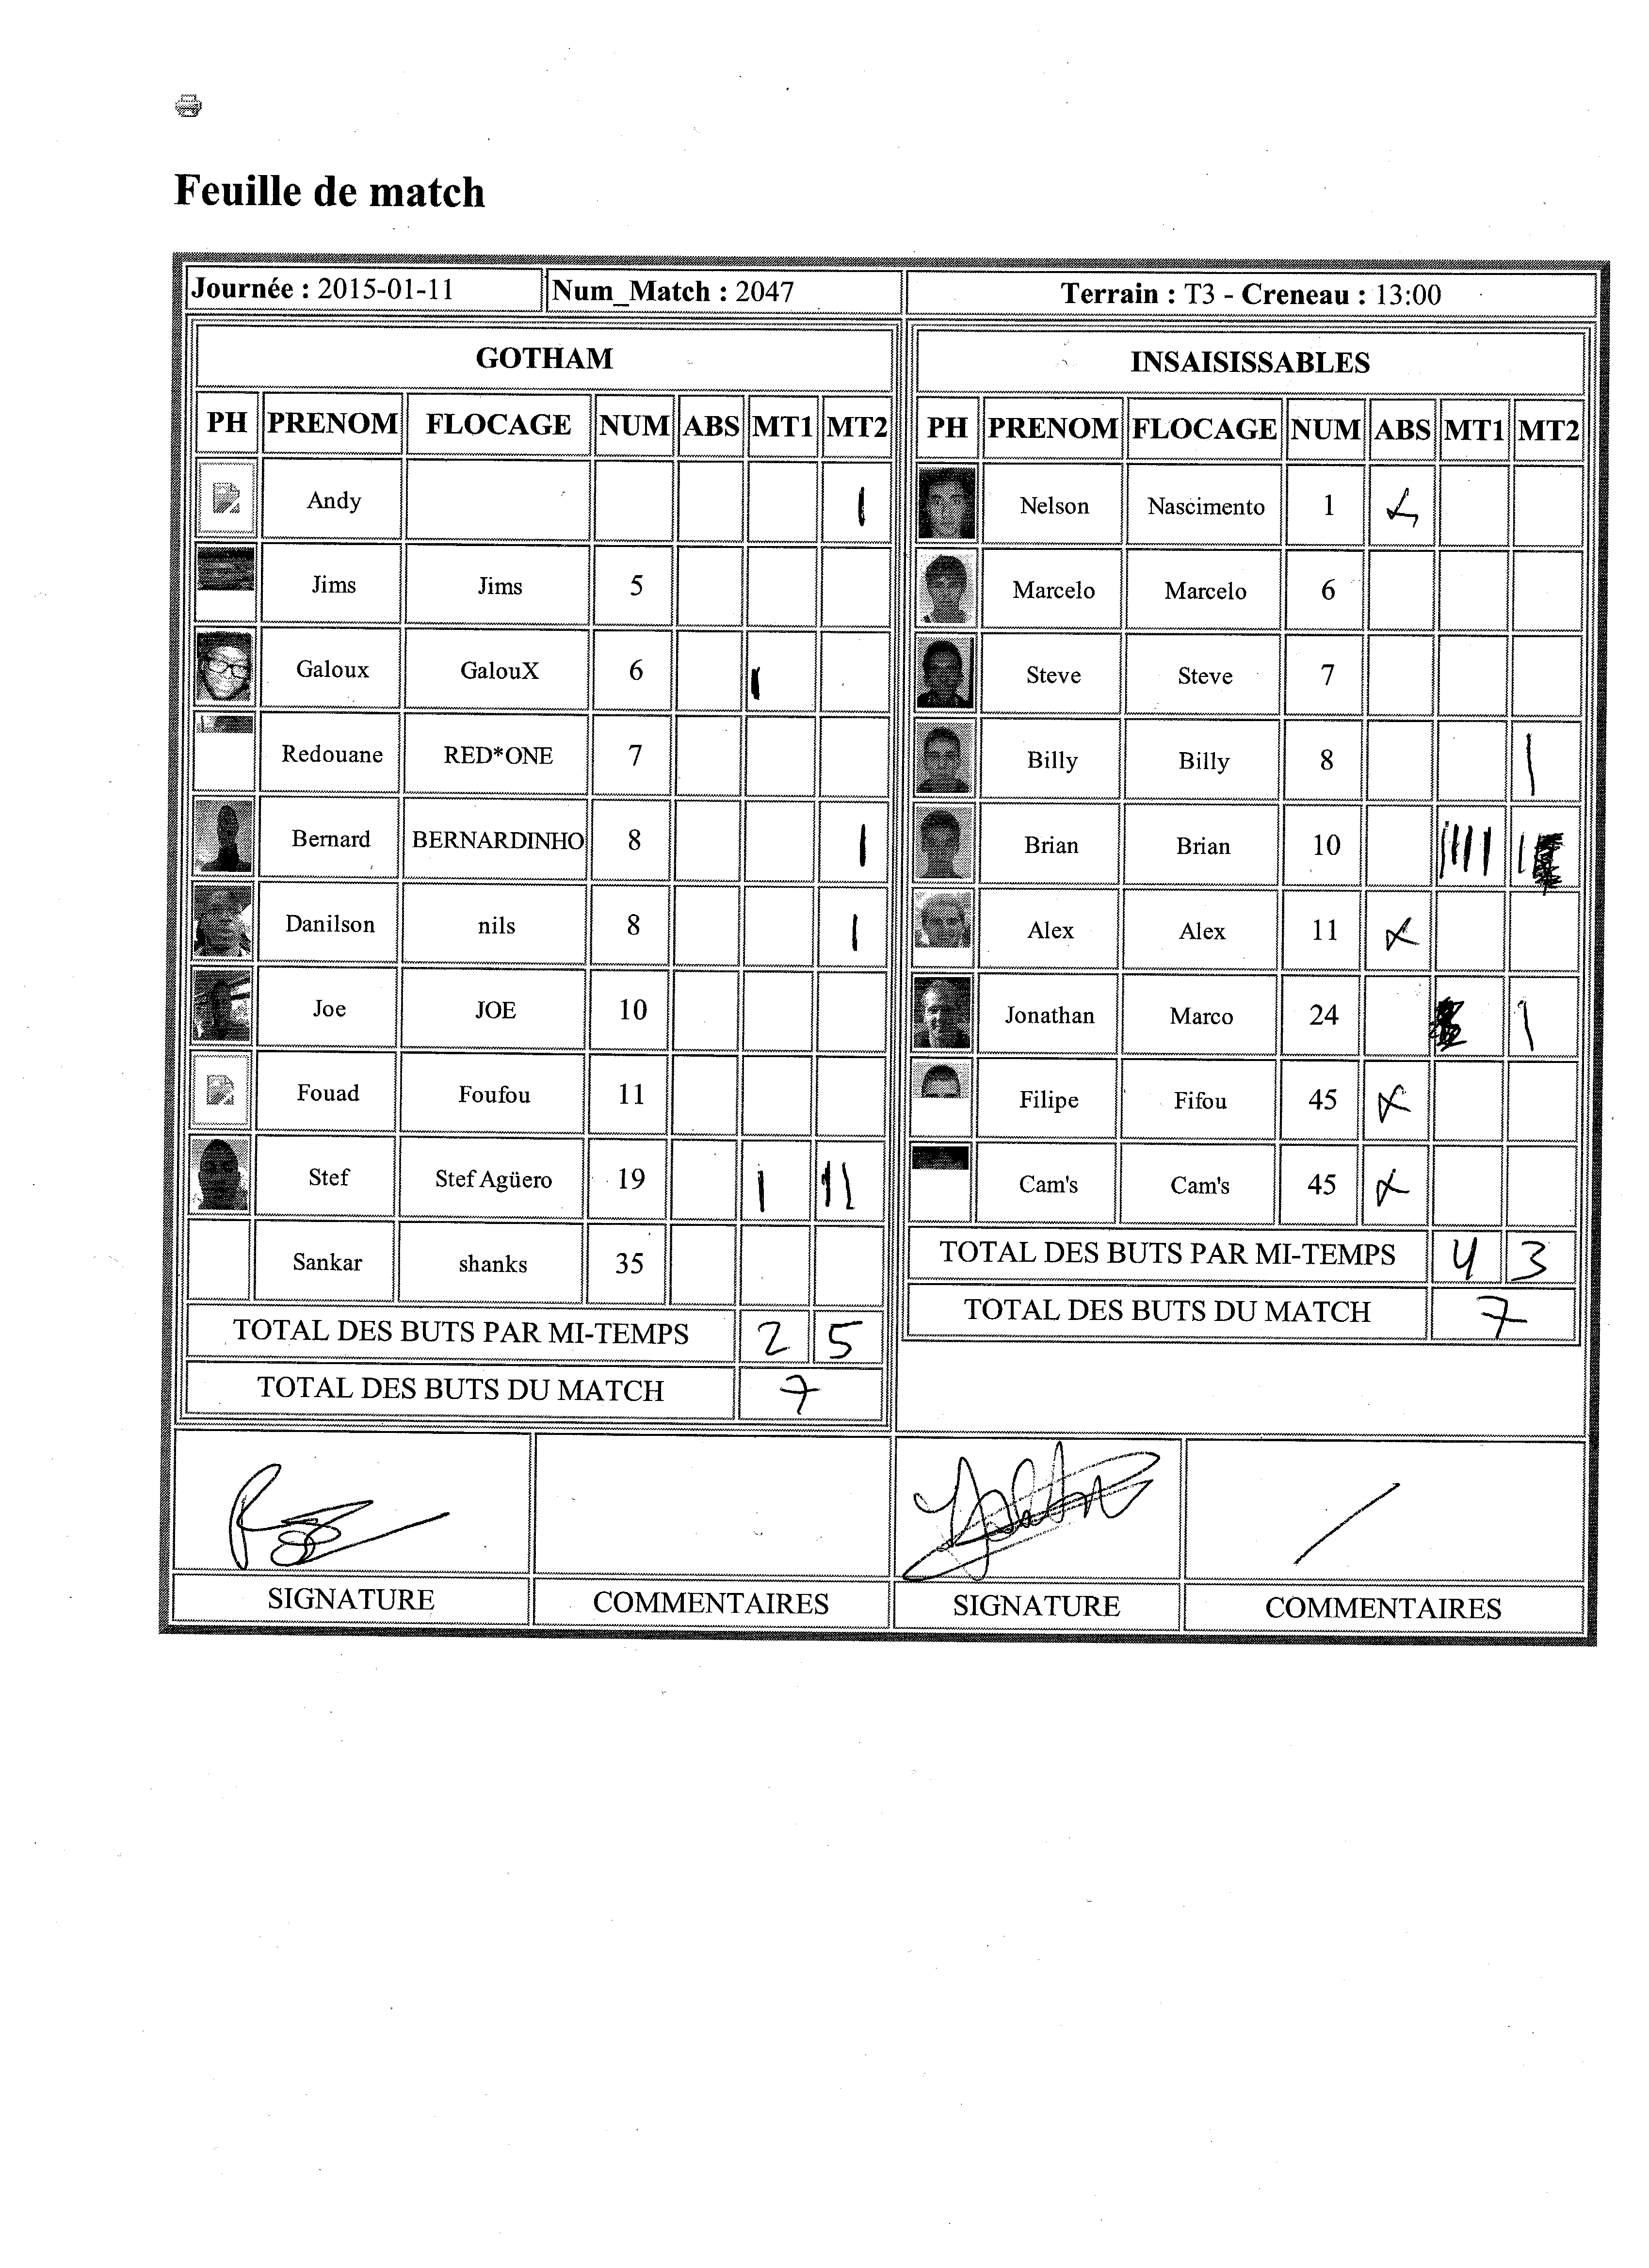 Feuille de match
Journée : 2015-01-11 Num_Match : 2047 Terrain : T3 - Creneau : 13:00
GOTHAM
PH PRENOM FLOCAGE NUM ABS MT1 MT2
Andy I
Jims Jims 5
Galoux GalouX 6 I
Redouane RED*ONE 7
Bernard BERNARDINHO 8 I
Danilson nils 8 I
Joe JOE 10
Fouad Foufou 11
Stef Stef Agüero 19 I II
Sankar shanks 35
TOTAL DES BUTS PAR MI-TEMPS 2 5
TOTAL DES BUTS DU MATCH 7
SIGNATURE COMMENTAIRES
INSAISISSABLES
PH PRENOM FLOCAGE NUM ABS MT1 MT2
Nelson Nascimento 1 X
Marcelo Marcelo 6
Steve Steve 7
Billy Billy 8 I
Brian Brian 10 IIII I
Alex Alex 11 X
Jonathan Marco 24 I
Filipe Fifou 45 X
Cam's Cam's 45 X
TOTAL DES BUTS PAR MI-TEMPS 4 3
TOTAL DES BUTS DU MATCH 7
SIGNATURE COMMENTAIRES